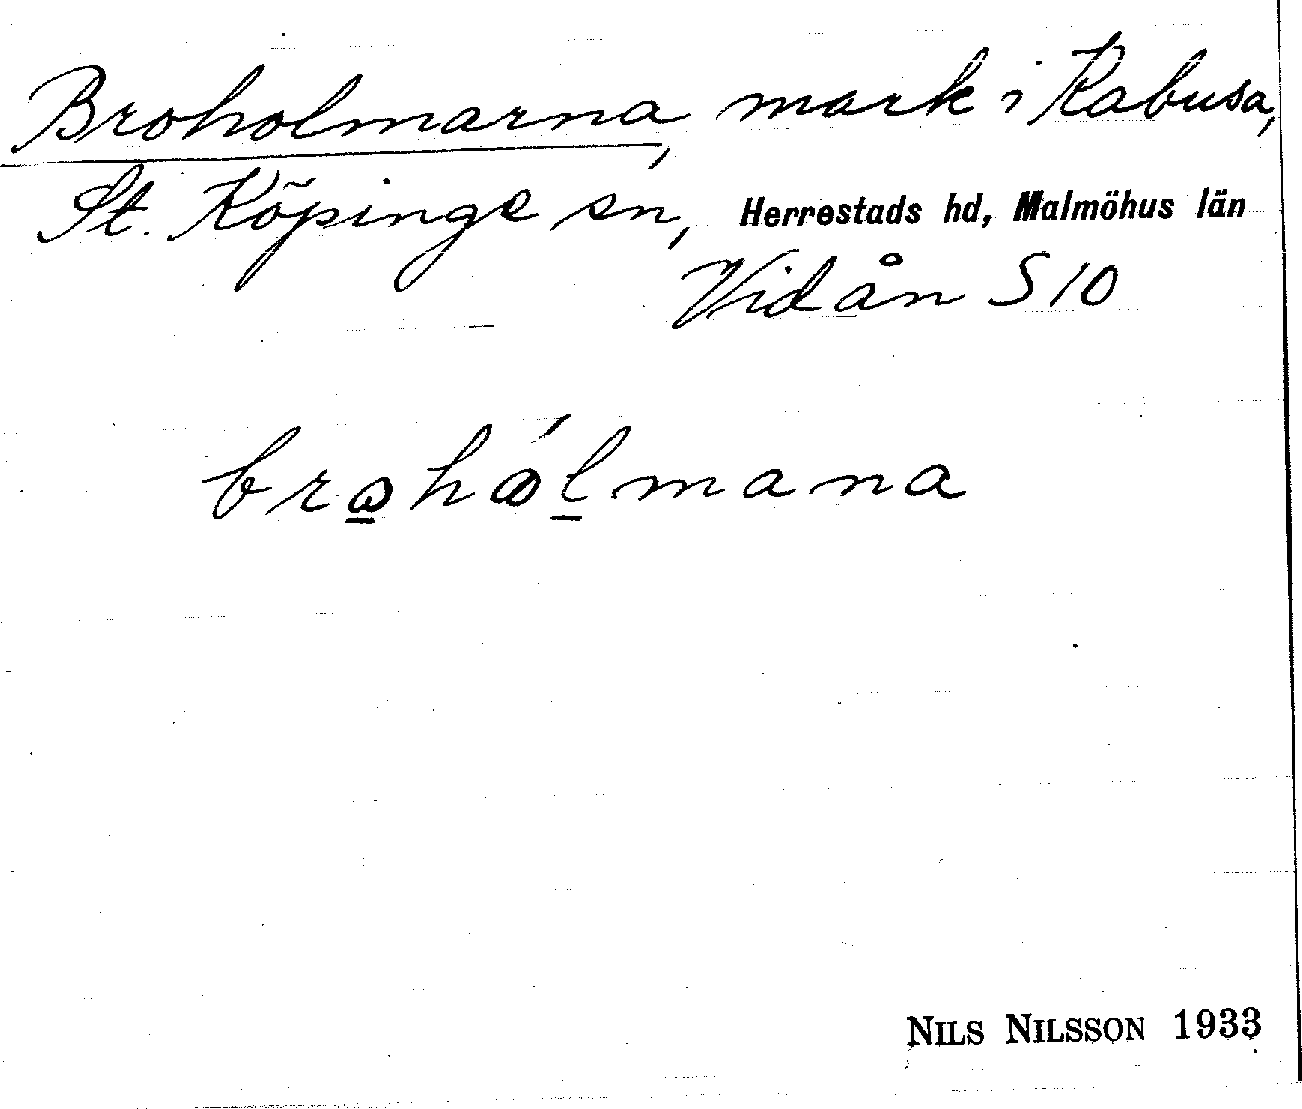 Broholmarna, mark i Kabusa,
St. Köpinge sn, Herrestads hd, Malmöhus län
Vid ån S 10
brɷ̠hɷ́l̠mana
NILS NILSSON 1933